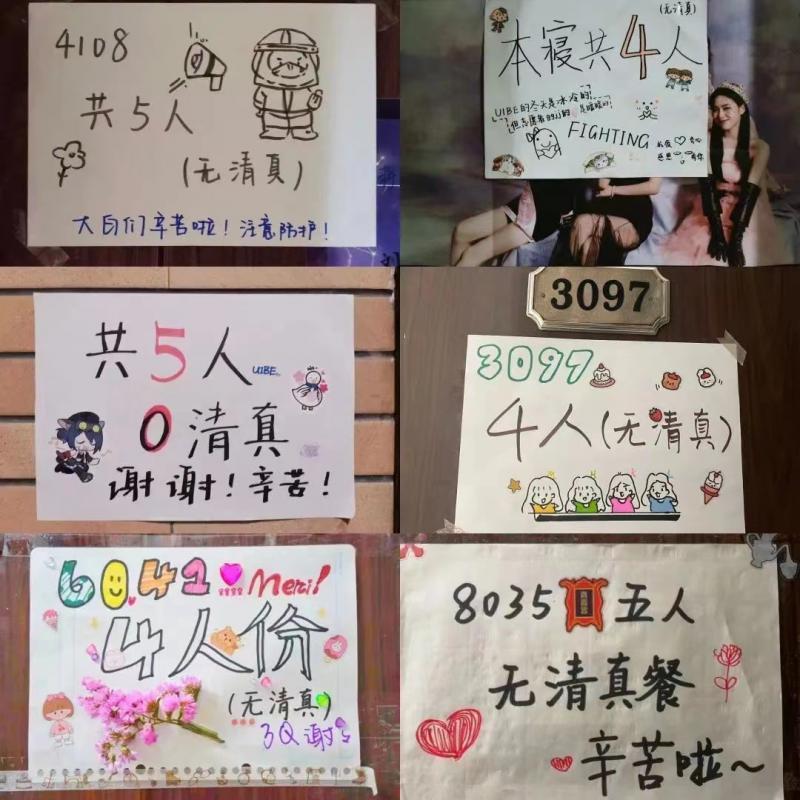 4108
共5人
(无清真)
大白们辛苦啦！注意防护！
(无清真)
本寝共4人
UIBE的冬天是冰冷的！
但志愿者的心的是暖暖的！
FIGHTING
感恩有你
共5人
UIBE
0清真
谢谢！辛苦！
3097
3097
4人(无清真)
6041 Merci!
4人份
(无清真)
3Q谢
8035 五人
无清真餐
辛苦啦～